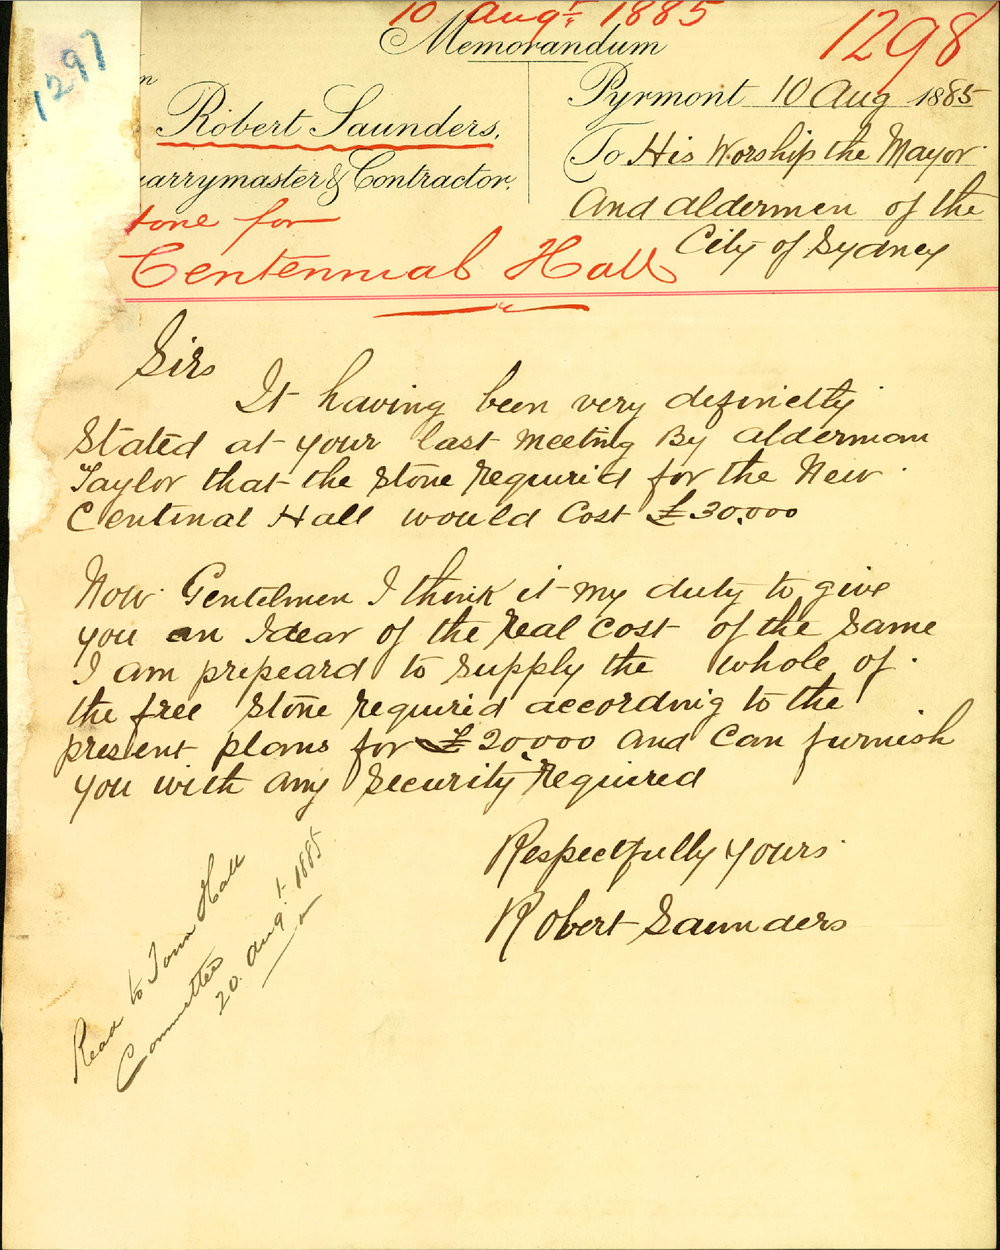 10 Augt 1885
1298
1297
Memorandum
Robert Saunders,
uarrymaster & Contractor.
Pyrmont 10 Aug 1885
To His Worship the Mayor
And aldermen of the
City of Sydney
tone for
Centennial Hall
Sirs
It having been very definietly
Stated at your last meeting By alderman
Taylor that the Stone requiried for the New
Centinal Hall would Cost £30,000
Now Gentelmen I think it my duty to give
you an Idear of the real Cost of the Same
I am prepeard to Supply the whole of
the free Stone requiried according to the
present plans for £20,000 and Can furnish
you with any Security required
Respectfully yours
Robert Saunders
Read to Town Hall
Committee
20. Augt. 1885